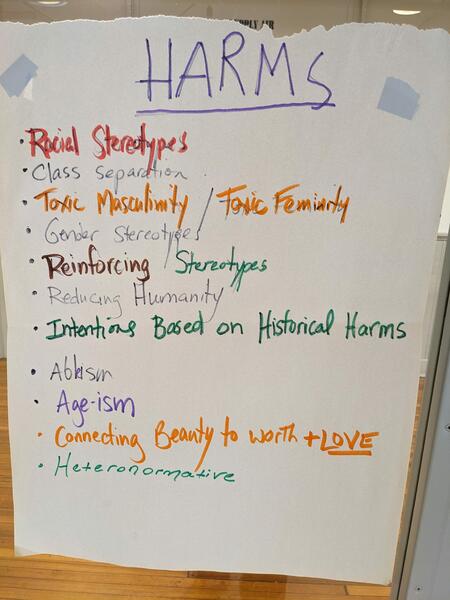 SUPPLY AIR
HARMS
• Racial Stereotypes
• Class separation
• Toxic Masculinity / Toxic Feminity
• Gender Stereotypes
• Reinforcing / Stereotypes
• Reducing Humanity
• Intentions Based on Historical Harms
• Ableism
• Age-ism
• Connecting Beauty to worth + LOVE
• Heteronormative